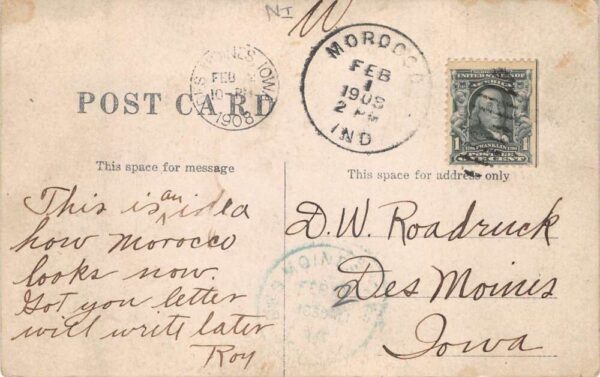 NI
W
MOROCCO
FEB
1
1908
2 PM
IND
DES MOINES, IOWA
FEB
10-PM
1908
POST CARD
UNITED STATES OF AMERICA
FRANKLIN
1
POSTAGE
ONE CENT
This space for message
This space for address only
This is an idea
how Morocco
looks now.
Got you letter
will write later
Roy
D. W. Roadruck
Des Moines
Iowa
MOINES
FEB